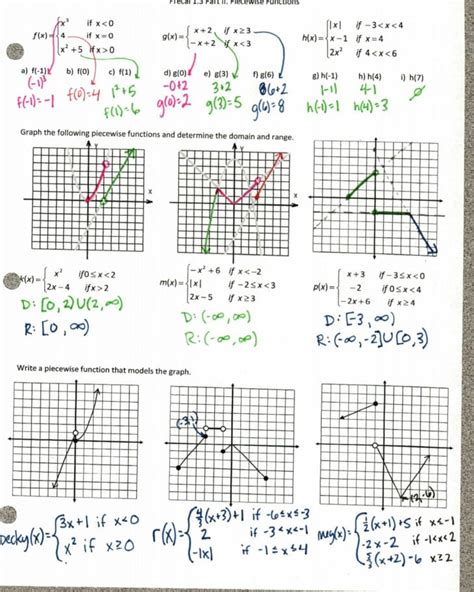 Precal 1.3 Part II: Piecewise Functions
f(x)= { x³ if x<0
4 if x=0
x²+5 if x>0
g(x)= { x+2 if x≥3
-x+2 if x<3
h(x)= { |x| if -3<x<4
x-1 if x=4
2x² if 4<x<6
a) f(-1) b) f(0) c) f(1) d) g(0) e) g(3) f) g(6) g) h(-1) h) h(4) i) h(7)
(-1)³ f(0)=4 1²+5 -0+2 3+2 6+2 |-1| 4-1 ∅
f(-1)=-1 f(1)=6 g(0)=2 g(3)=5 g(6)=8 h(-1)=1 h(4)=3
Graph the following piecewise functions and determine the domain and range.
y
x
y
x
k(x)= { x² if 0≤x<2
2x-4 if x>2
D: [0,2)U(2,∞)
R: [0,∞)
m(x)= { -x²+6 if x<-2
|x| if -2≤x<3
2x-5 if x≥3
D: (-∞,∞)
R: (-∞,∞)
p(x)= { x+3 if -3≤x<0
-2 if 0≤x<4
-2x+6 if x≥4
D: [-3,∞)
R: (-∞,-2]U[0,3)
Write a piecewise function that models the graph.
(-3,1)
(2,-6)
Decky(x)= { 3x+1 if x<0
x² if x≥0
r(x)= { 4/3(x+3)+1 if -6≤x≤-3
2 if -3<x<-1
-|x| if -1≤x≤4
meg(x)= { 1/2(x+1)+5 if x<-1
-2x-2 if -1<x<2
5/3(x+2)-6 x≥2